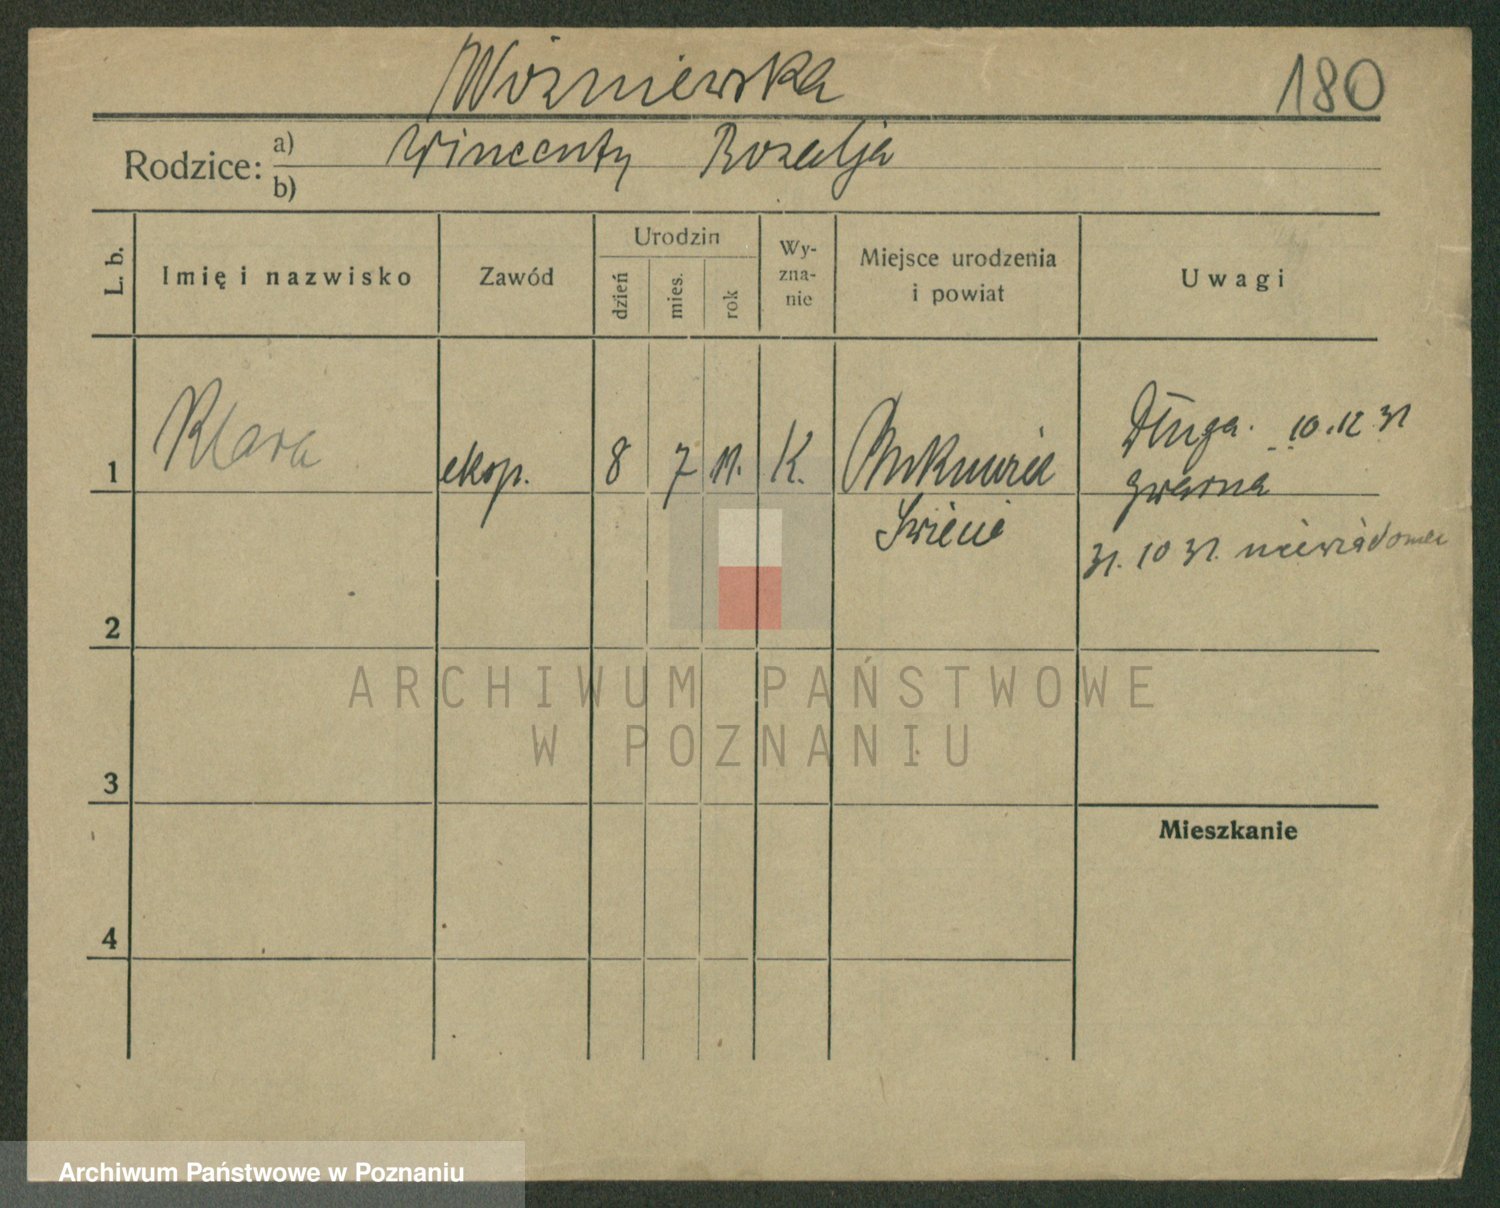 Woźniewska
180
Rodzice: a) Wincenty Rozalja
b)
L. b.
Imię i nazwisko
Zawód
Urodzin
dzień
mies.
rok
Wy-
zna-
nie
Miejsce urodzenia
i powiat
Uwagi
1
Klara
eksp.
8
7
11.
K.
Świecie
Długa. 10.12 31
31. 10 31. niewiadomo
2
3
4
Mieszkanie
ARCHIWUM PAŃSTWOWE
W POZNANIU
Archiwum Państwowe w Poznaniu